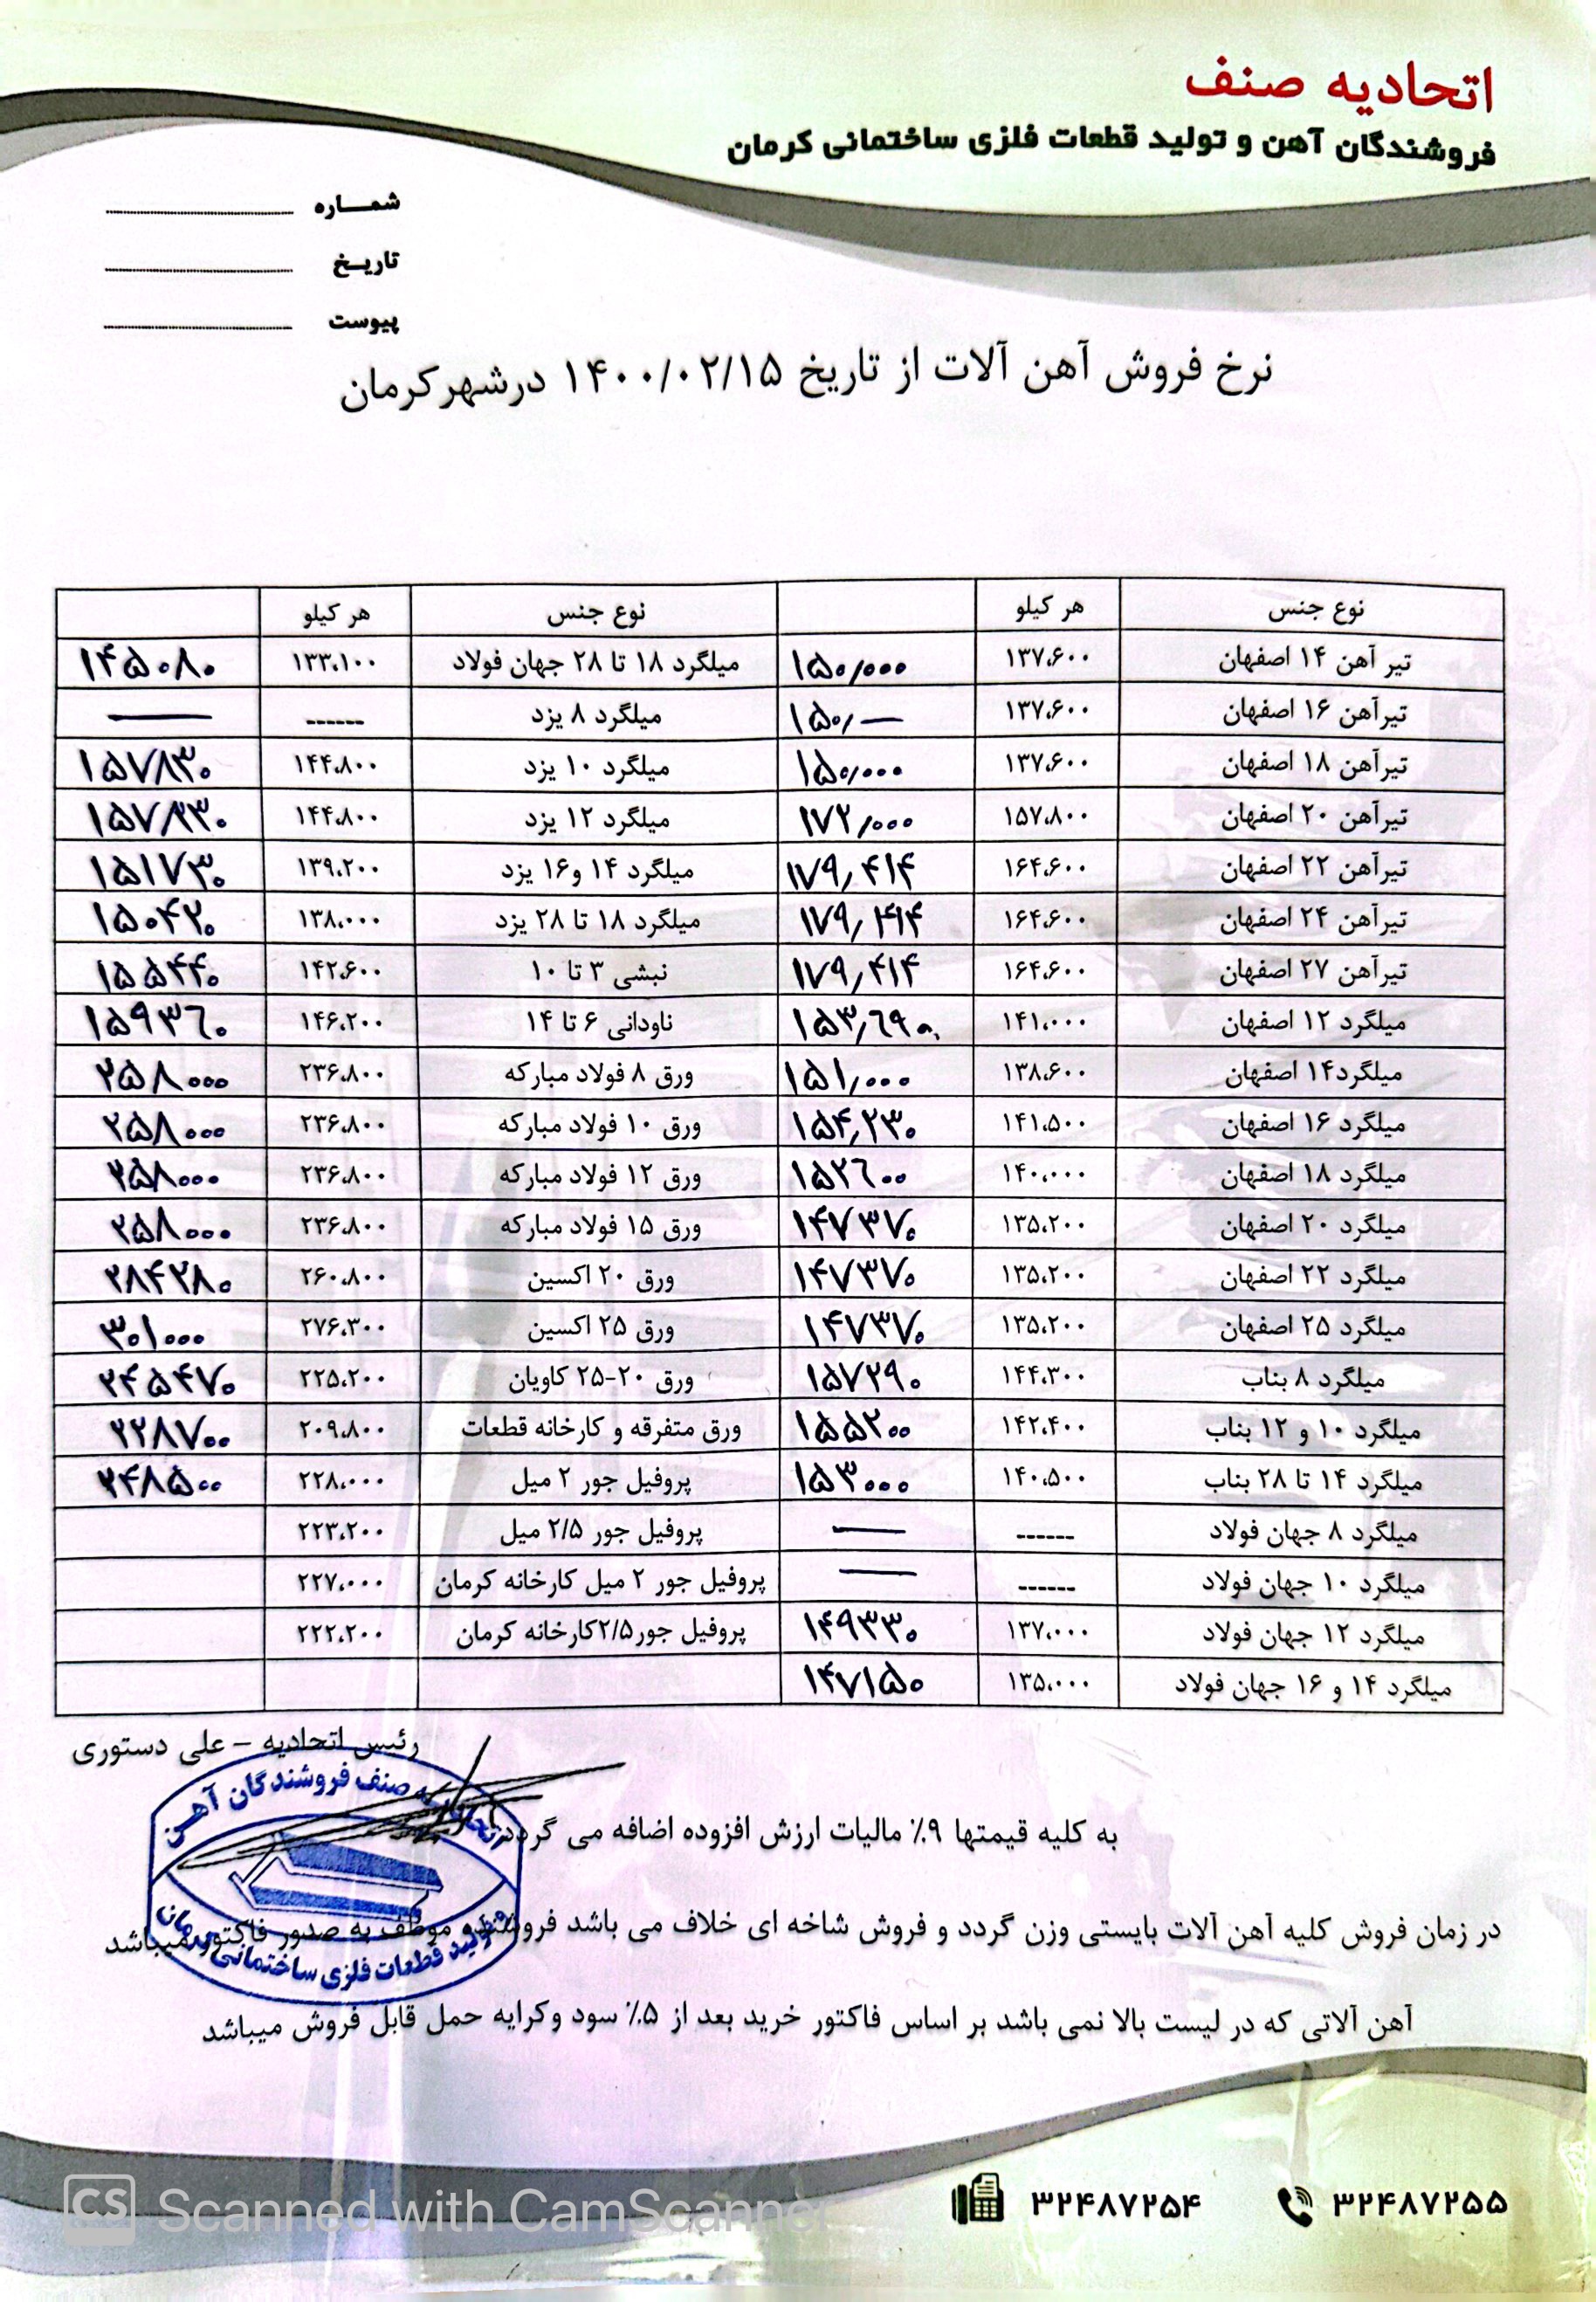 اتحادیه صنف
فروشندگان آهن و تولید قطعات فلزی ساختمانی کرمان
شماره
تاریخ
پیوست
نرخ فروش آهن آلات از تاریخ ۱۴۰۰/۰۲/۱۵ درشهرکرمان
نوع جنس هر کیلو نوع جنس هر کیلو
تیر آهن ۱۴ اصفهان ۱۳۷،۶۰۰ ۱۵۰/۰۰۰ میلگرد ۱۸ تا ۲۸ جهان فولاد ۱۳۳،۱۰۰ ۱۴۵۰۸۰
تیرآهن ۱۶ اصفهان ۱۳۷،۶۰۰ ۱۵۰/— میلگرد ۸ یزد ------ —
تیرآهن ۱۸ اصفهان ۱۳۷،۶۰۰ ۱۵۰/۰۰۰ میلگرد ۱۰ یزد ۱۴۴،۸۰۰ ۱۵۷۸۳۰
تیرآهن ۲۰ اصفهان ۱۵۷،۸۰۰ ۱۷۲/۰۰۰ میلگرد ۱۲ یزد ۱۴۴،۸۰۰
تیرآهن ۲۲ اصفهان ۱۶۴،۶۰۰ ۱۷۹/۴۱۴ میلگرد ۱۴ و۱۶ یزد ۱۳۹،۲۰۰ ۱۵۱۷۳۰
تیرآهن ۲۴ اصفهان ۱۶۴،۶۰۰ میلگرد ۱۸ تا ۲۸ یزد ۱۳۸،۰۰۰ ۱۵۰۴۲۰
تیرآهن ۲۷ اصفهان ۱۶۴،۶۰۰ ۱۷۹/۴۱۴ نبشی ۳ تا ۱۰ ۱۴۲،۶۰۰ ۱۵۵۴۴۰
میلگرد ۱۲ اصفهان ۱۴۱،۰۰۰ ۱۵۳/۶۹۰ ناودانی ۶ تا ۱۴ ۱۴۶،۲۰۰ ۱۵۹۳۶۰
میلگرد۱۴ اصفهان ۱۳۸،۶۰۰ ۱۵۱/۰۰۰ ورق ۸ فولاد مبارکه ۲۳۶،۸۰۰ ۲۵۸۰۰۰
میلگرد ۱۶ اصفهان ۱۴۱،۵۰۰ ۱۵۴/۲۳۰ ورق ۱۰ فولاد مبارکه ۲۳۶،۸۰۰ ۲۵۸۰۰۰
میلگرد ۱۸ اصفهان ۱۴۰،۰۰۰ ۱۵۲۶۰۰ ورق ۱۲ فولاد مبارکه ۲۳۶،۸۰۰ ۲۵۸۰۰۰
میلگرد ۲۰ اصفهان ۱۳۵،۲۰۰ ۱۴۷۳۷۰ ورق ۱۵ فولاد مبارکه ۲۳۶،۸۰۰ ۲۵۸۰۰۰
میلگرد ۲۲ اصفهان ۱۳۵،۲۰۰ ۱۴۷۳۷۰ ورق ۲۰ اکسین ۲۶۰،۸۰۰ ۲۸۴۲۸۰
میلگرد ۲۵ اصفهان ۱۳۵،۲۰۰ ۱۴۷۳۷۰ ورق ۲۵ اکسین ۲۷۶،۳۰۰ ۳۰۱۰۰۰
میلگرد ۸ بناب ۱۴۴،۳۰۰ ۱۵۷۲۹۰ ورق ۲۰-۲۵ کاویان ۲۲۵،۲۰۰ ۲۴۵۴۷۰
میلگرد ۱۰ و ۱۲ بناب ۱۴۲،۴۰۰ ۱۵۵۲۰۰ ورق متفرقه و کارخانه قطعات ۲۰۹،۸۰۰ ۲۲۸۷۰۰
میلگرد ۱۴ تا ۲۸ بناب ۱۴۰،۵۰۰ ۱۵۳۰۰۰ پروفیل جور ۲ میل ۲۲۸،۰۰۰ ۲۴۸۵۰۰
میلگرد ۸ جهان فولاد ------ — پروفیل جور ۲/۵ میل ۲۲۳،۲۰۰
میلگرد ۱۰ جهان فولاد ------ — پروفیل جور ۲ میل کارخانه کرمان ۲۲۷،۰۰۰
میلگرد ۱۲ جهان فولاد ۱۳۷،۰۰۰ ۱۴۹۳۳۰ پروفیل جور۲/۵کارخانه کرمان ۲۲۲،۲۰۰
میلگرد ۱۴ و ۱۶ جهان فولاد ۱۳۵،۰۰۰ ۱۴۷۱۵۰
رئیس اتحادیه – علی دستوری
صنف فروشندگان آهن
تولید قطعات فلزی ساختمانی کرمان
به کلیه قیمتها ۹٪ مالیات ارزش افزوده اضافه می گردد
در زمان فروش کلیه آهن آلات بایستی وزن گردد و فروش شاخه ای خلاف می باشد فروشنده موظف به صدور فاکتور میباشد
آهن آلاتی که در لیست بالا نمی باشد بر اساس فاکتور خرید بعد از ۵٪ سود وکرایه حمل قابل فروش میباشد
۳۲۴۸۷۲۵۵ ۳۲۴۸۷۲۵۴
CS Scanned with CamScanner